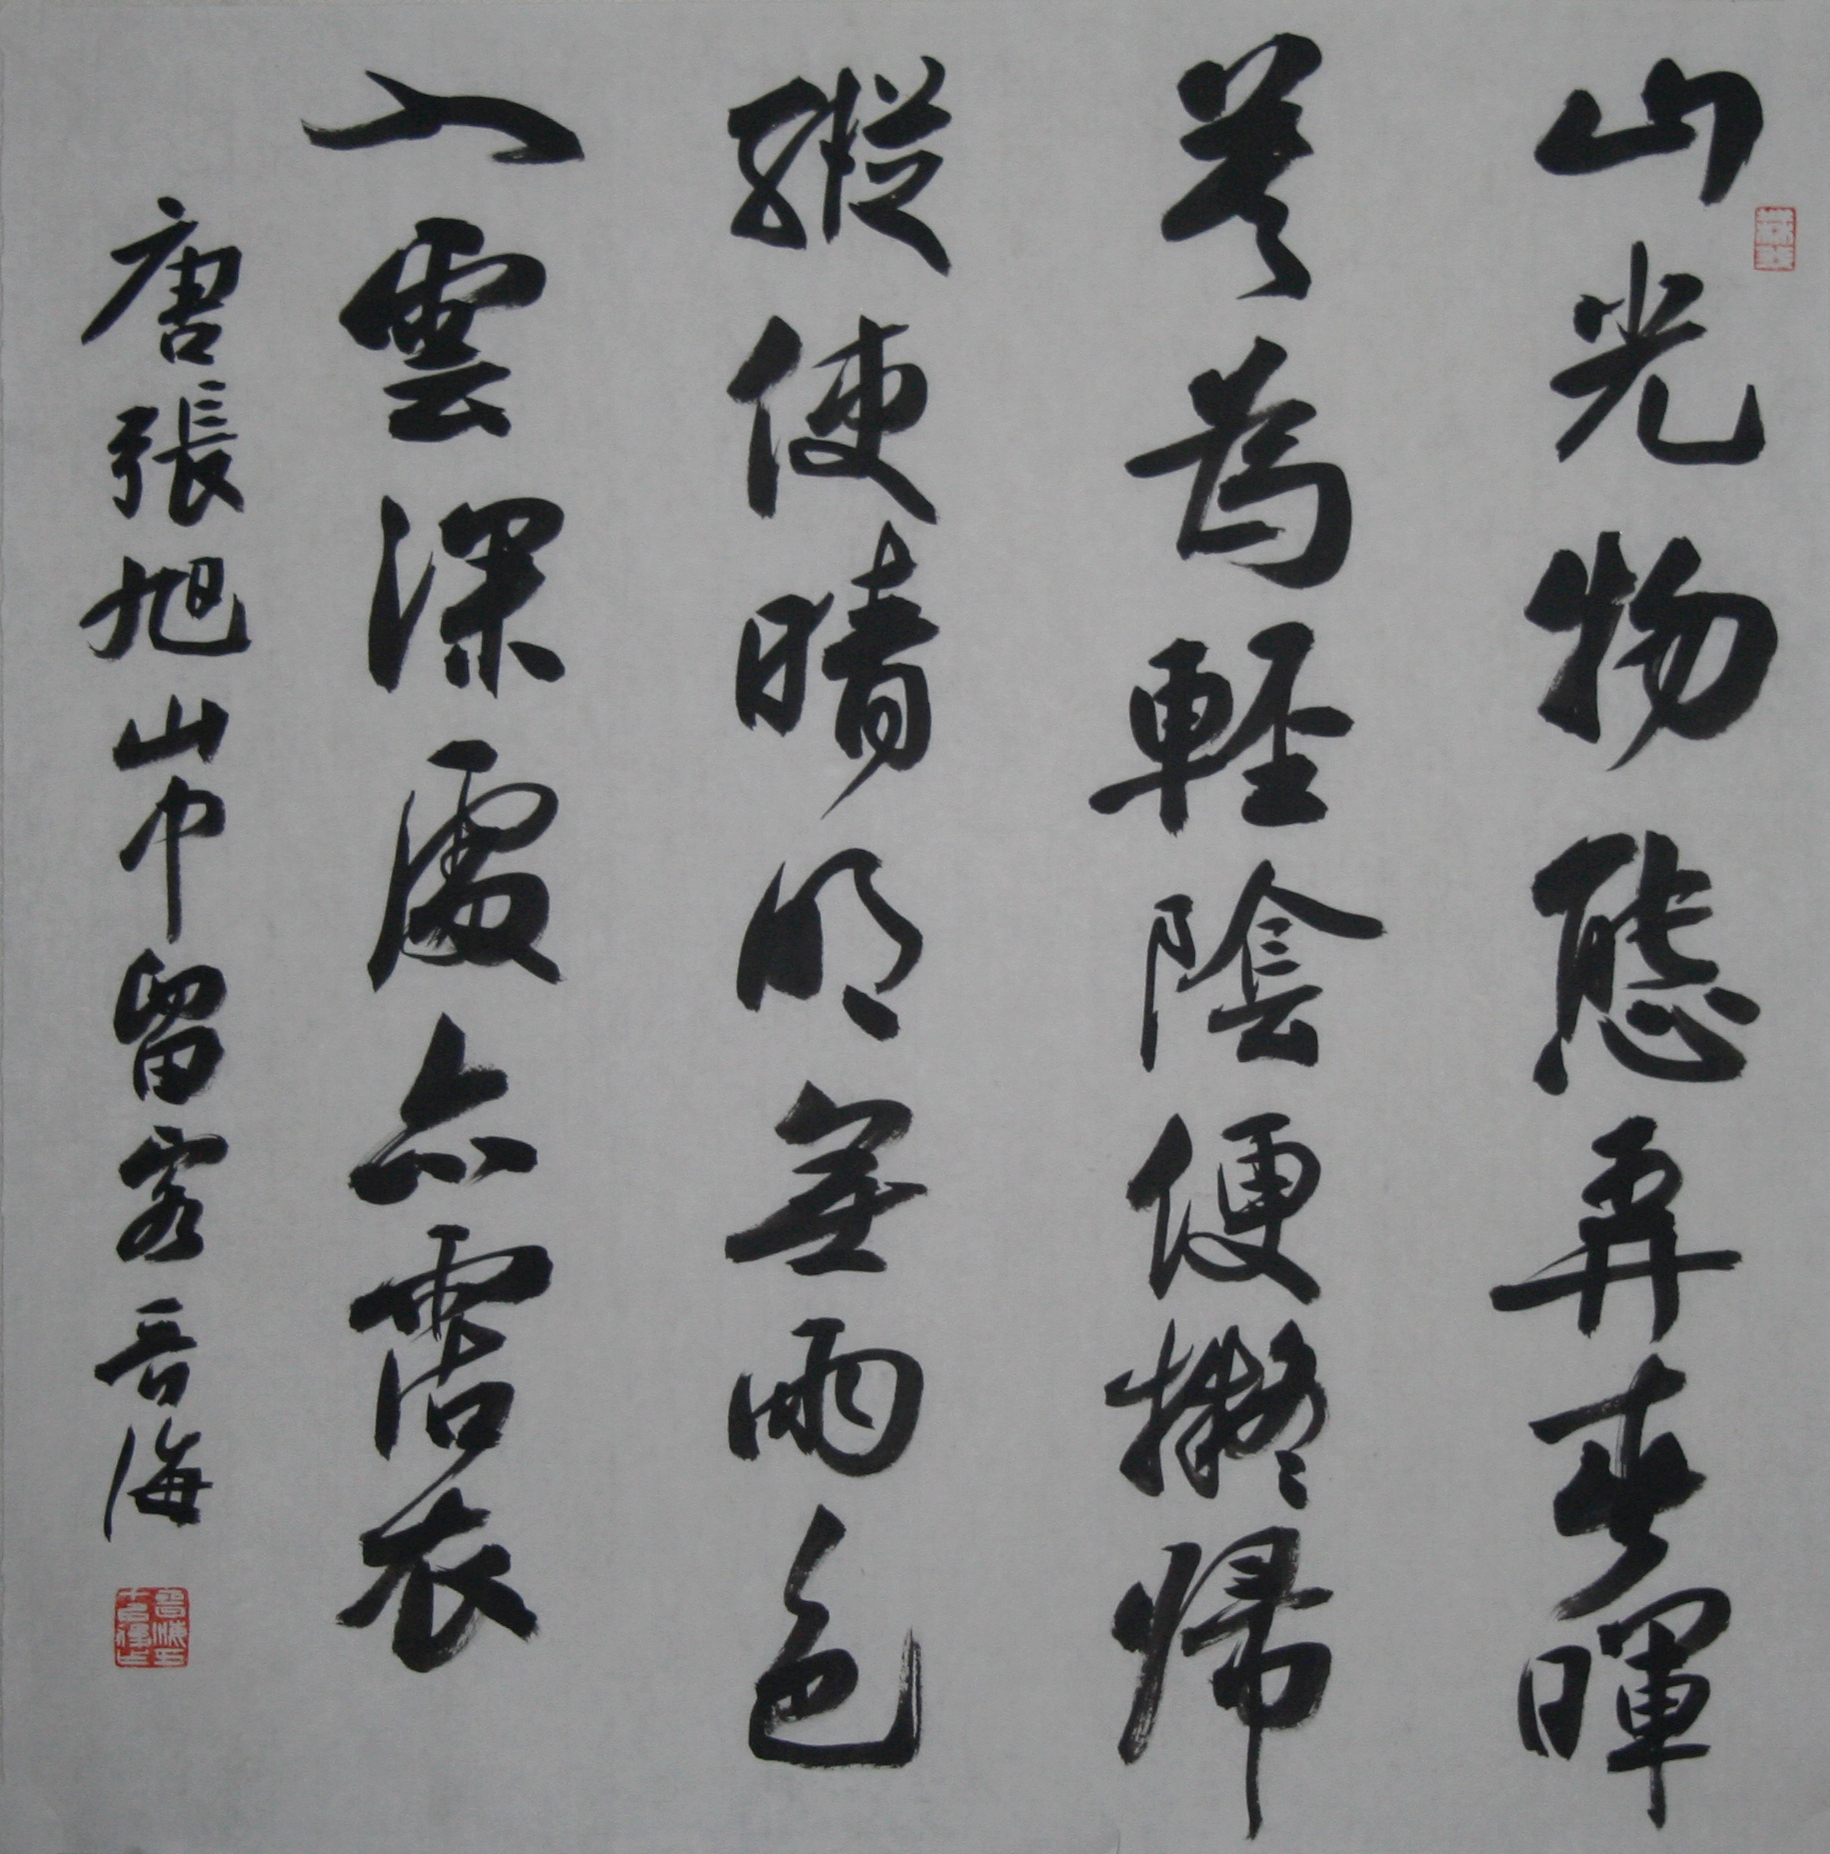 山光物態弄春暉
莫為輕陰便擬歸
縱使晴明無雨色
入雲深處亦霑衣
唐張旭山中留客 晋海